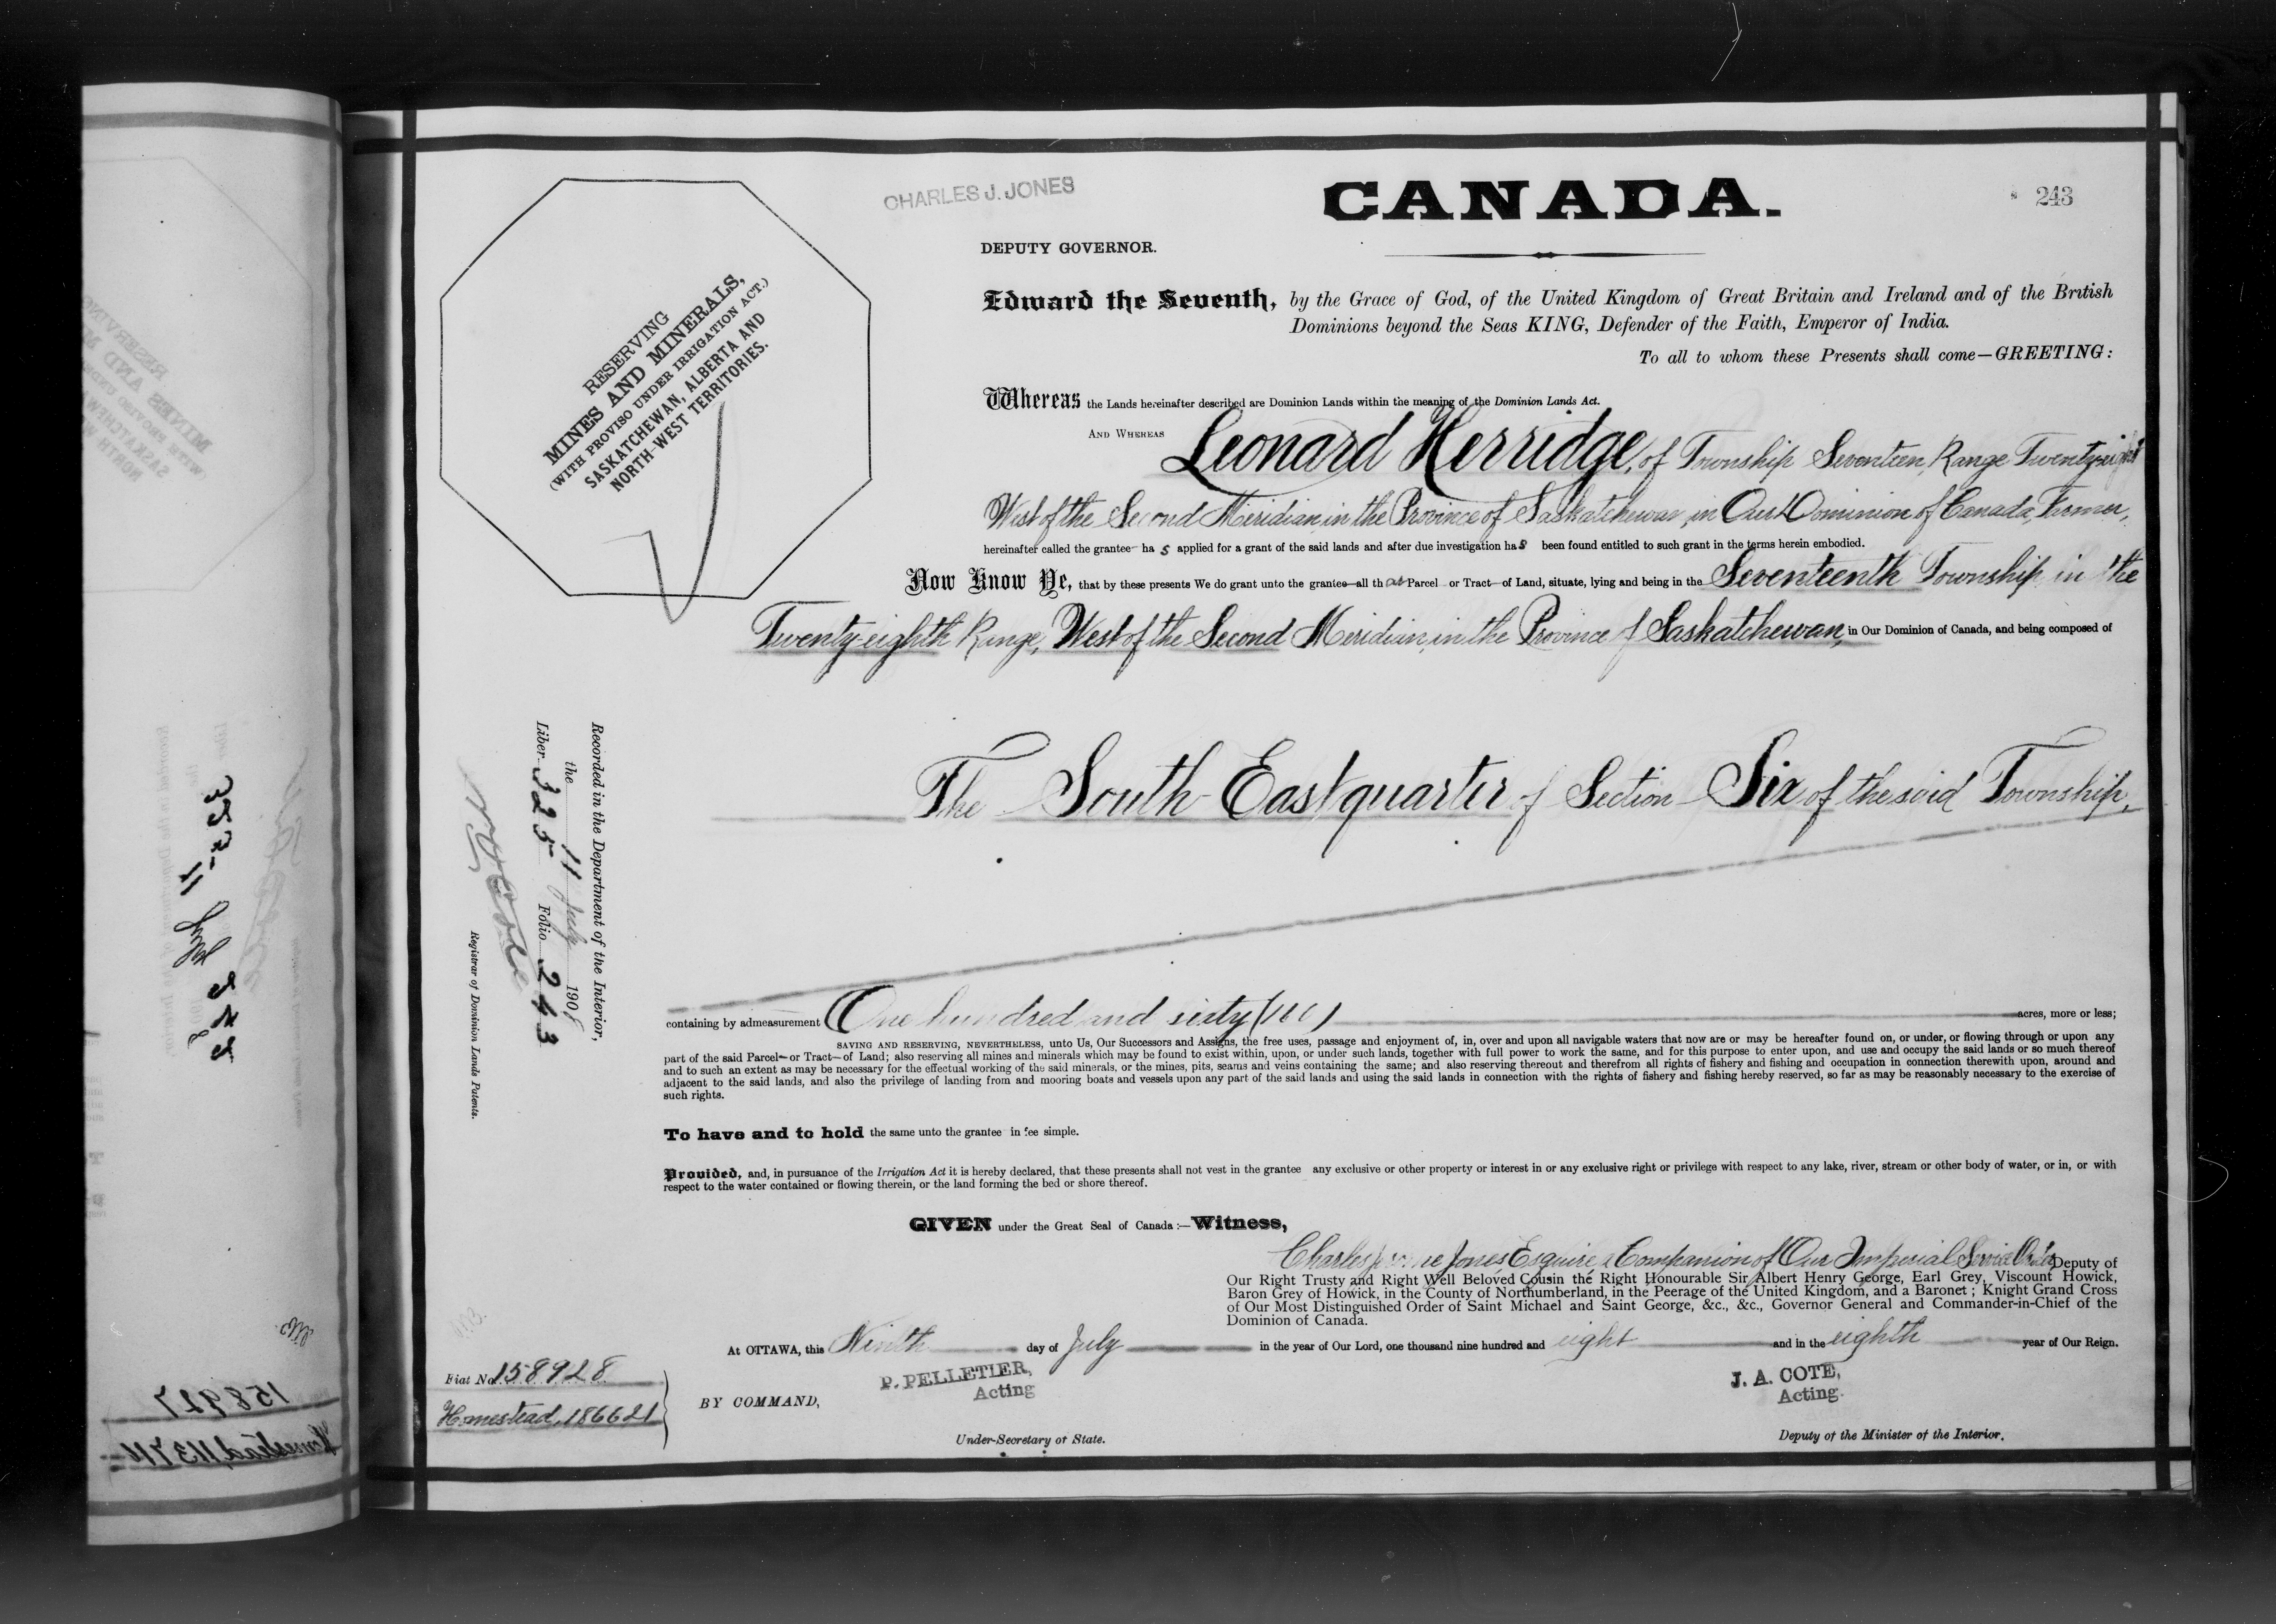 CHARLES J. JONES
CANADA.
243
DEPUTY GOVERNOR.
RESERVING
MINES AND MINERALS,
(WITH PROVISO UNDER IRRIGATION ACT.)
SASKATCHEWAN, ALBERTA AND
NORTH-WEST TERRITORIES.
Edward the Seventh, by the Grace of God, of the United Kingdom of Great Britain and Ireland and of the British
Dominions beyond the Seas KING, Defender of the Faith, Emperor of India.
To all to whom these Presents shall come—GREETING:
Whereas the Lands hereinafter described are Dominion Lands within the meaning of the Dominion Lands Act.
AND WHEREAS Leonard Herridge, of Township Seventeen, Range Twenty-eight
West of the Second Meridian in the Province of Saskatchewan in Our Dominion of Canada, Farmer,
hereinafter called the grantee has applied for a grant of the said lands and after due investigation has been found entitled to such grant in the terms herein embodied.
Now Know Ye, that by these presents We do grant unto the grantee—all that Parcel or Tract—of Land, situate, lying and being in the Seventeenth Township in the
Twenty-eighth Range, West of the Second Meridian, in the Province of Saskatchewan, in Our Dominion of Canada, and being composed of
The South-East quarter of Section Six of the said Township,
containing by admeasurement One hundred and sixty (160) acres, more or less;
SAVING AND RESERVING, NEVERTHELESS, unto Us, Our Successors and Assigns, the free uses, passage and enjoyment of, in, over and upon all navigable waters that now are or may be hereafter found on, or under, or flowing through or upon any
part of the said Parcel—or Tract—of Land; also reserving all mines and minerals which may be found to exist within, upon, or under such lands, together with full power to work the same, and for this purpose to enter upon, and use and occupy the said lands or so much thereof
and to such an extent as may be necessary for the effectual working of the said minerals, or the mines, pits, seams and veins containing the same; and also reserving thereout and therefrom all rights of fishery and fishing and occupation in connection therewith upon, around and
adjacent to the said lands, and also the privilege of landing from and mooring boats and vessels upon any part of the said lands and using the said lands in connection with the rights of fishery and fishing hereby reserved, so far as may be reasonably necessary to the exercise of
such rights.
To have and to hold the same unto the grantee in fee simple.
Provided, and, in pursuance of the Irrigation Act it is hereby declared, that these presents shall not vest in the grantee any exclusive or other property or interest in or any exclusive right or privilege with respect to any lake, river, stream or other body of water, or in, or with
respect to the water contained or flowing therein, or the land forming the bed or shore thereof.
GIVEN under the Great Seal of Canada:—Witness,
Charles Jones Esquire, a Companion of Our Imperial Service Order Deputy of
Our Right Trusty and Right Well Beloved Cousin the Right Honourable Sir Albert Henry George, Earl Grey, Viscount Howick,
Baron Grey of Howick, in the County of Northumberland, in the Peerage of the United Kingdom, and a Baronet; Knight Grand Cross
of Our Most Distinguished Order of Saint Michael and Saint George, &c., &c., Governor General and Commander-in-Chief of the
Dominion of Canada.
At OTTAWA, this Ninth day of July in the year of Our Lord, one thousand nine hundred and eight and in the eighth year of Our Reign.
BY COMMAND,
P. PELLETIER,
Acting
Under-Secretary of State.
J. A. COTE,
Acting.
Deputy of the Minister of the Interior.
Recorded in the Department of the Interior,
the 11 July 1908
Liber 325 Folio 243
Registrar of Dominion Lands Patents.
Fiat No. 158928
Homestead, 186621
158927